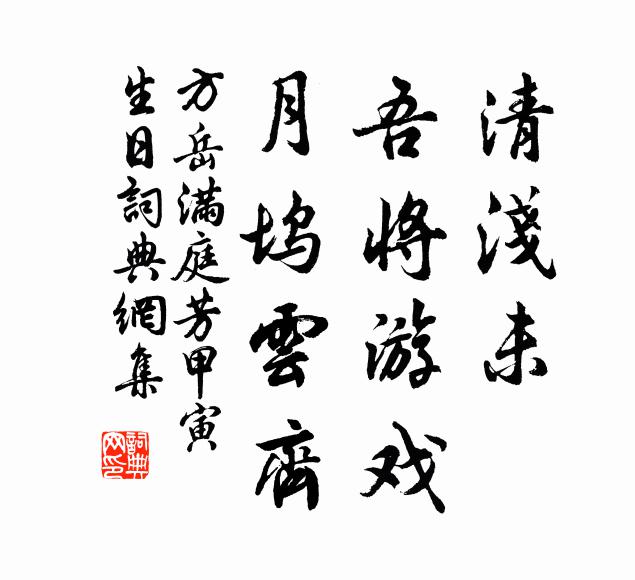 清淺未
吾將游戏
月坞雲齊
方岳滿庭芳甲寅
生日詞典網集
詞典网印